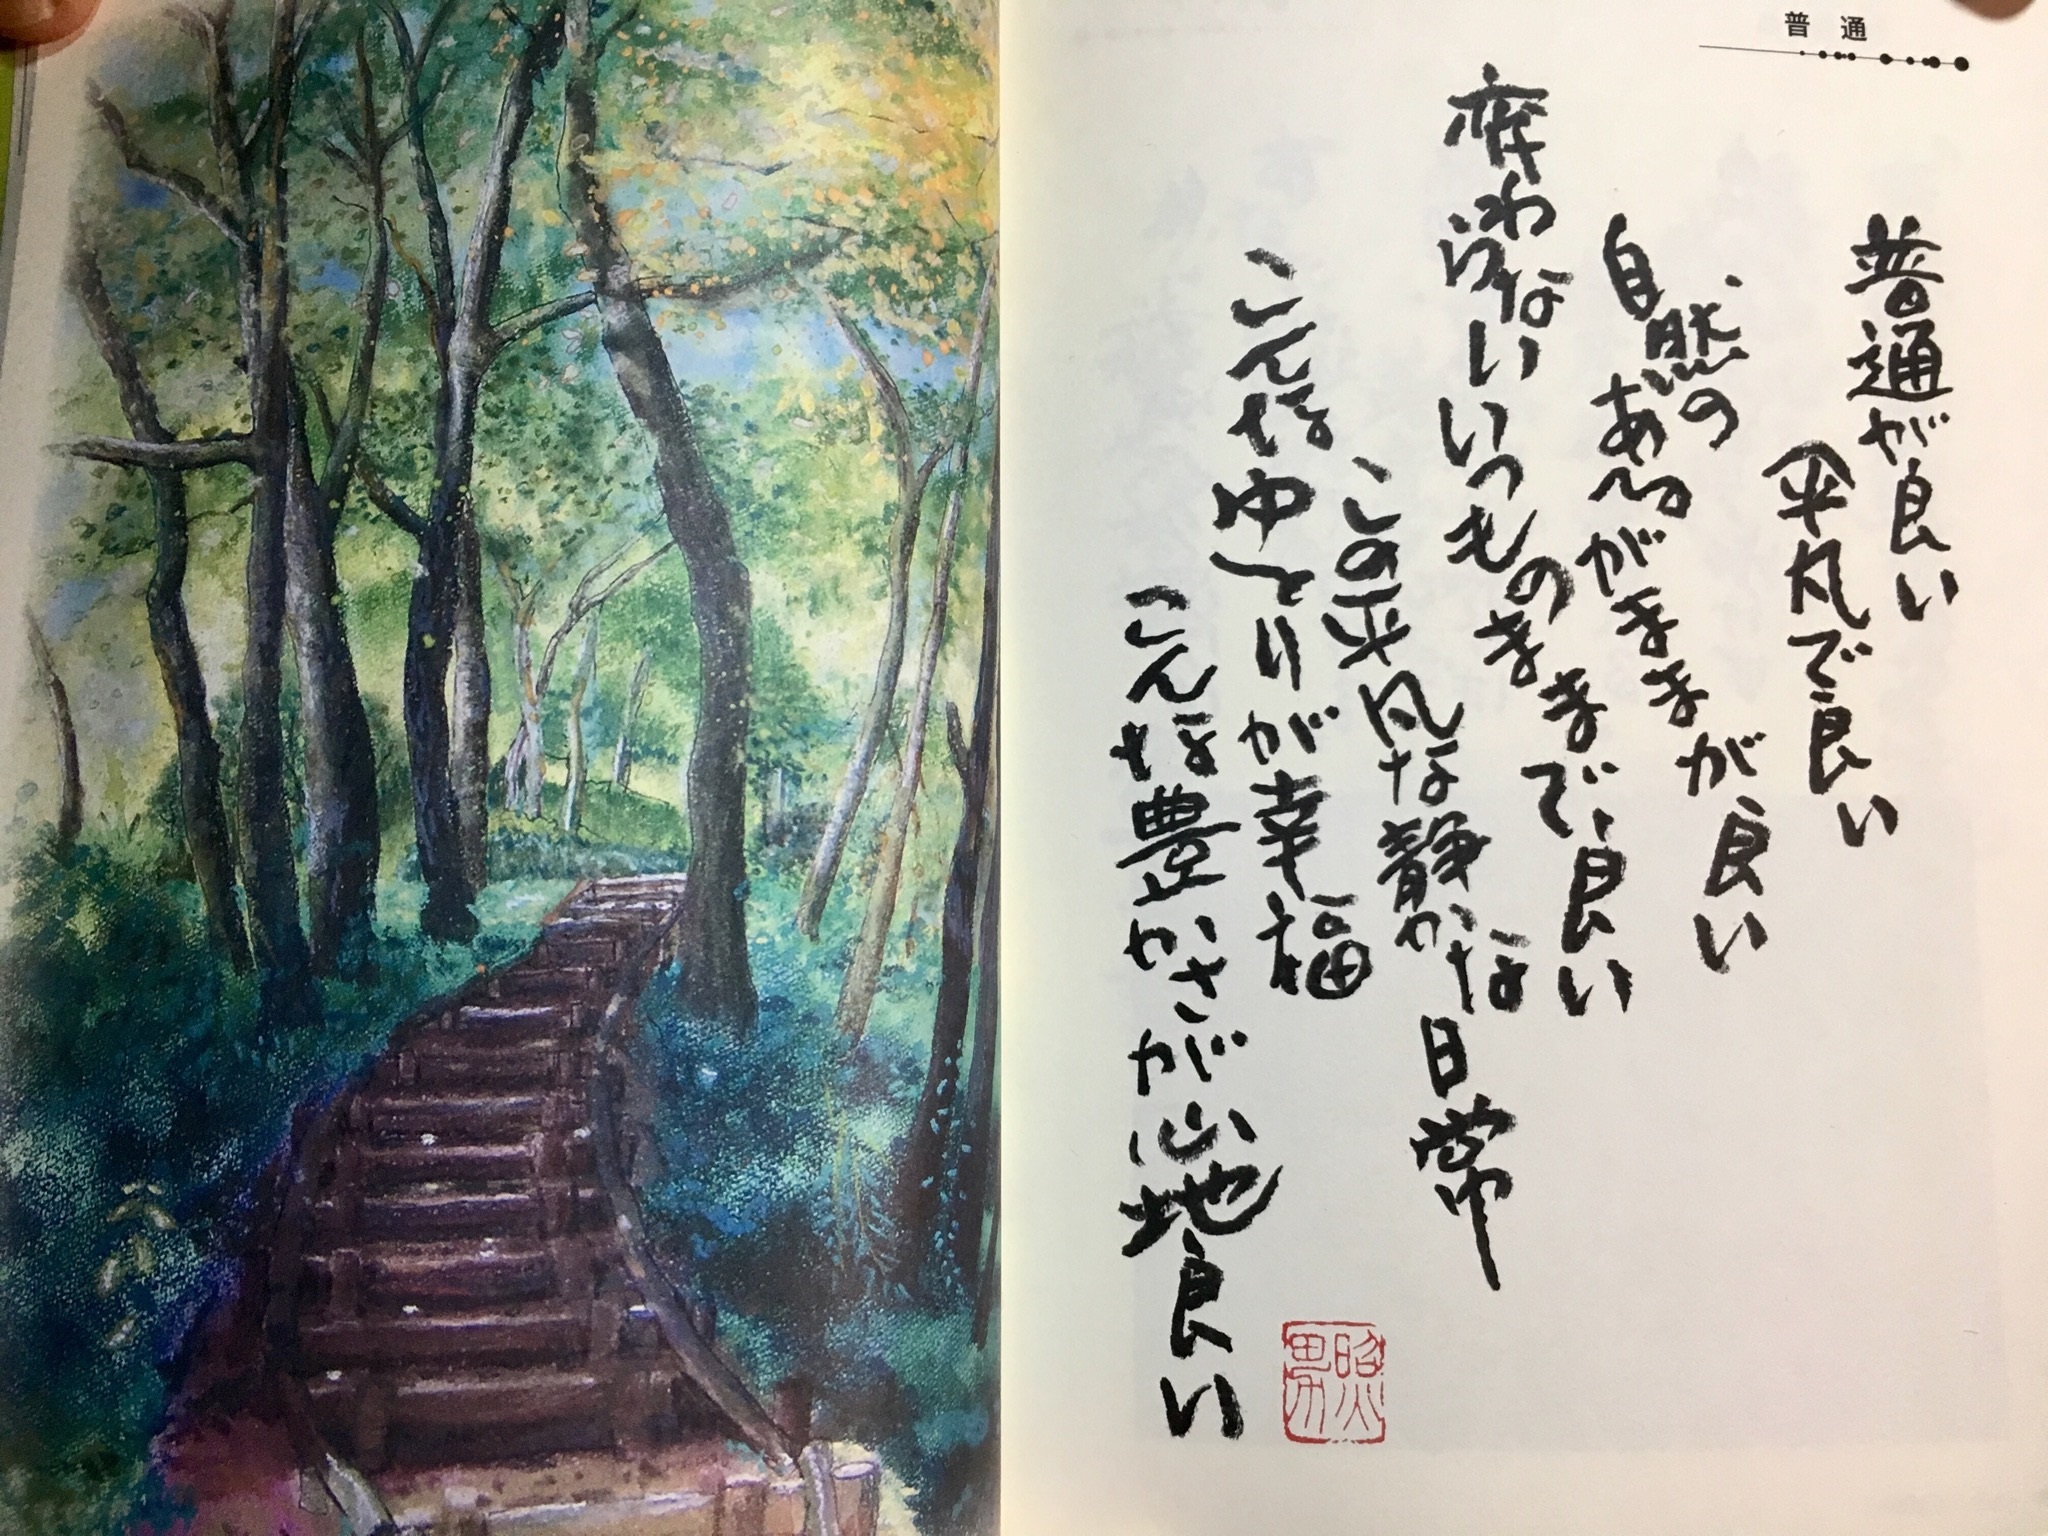 普通
普通が良い
平凡で良い
自然のあるがままが良い
変わらないいつものままで良い
この平凡な静かな日常
こんなゆとりが幸福
こんな豊かさが心地良い